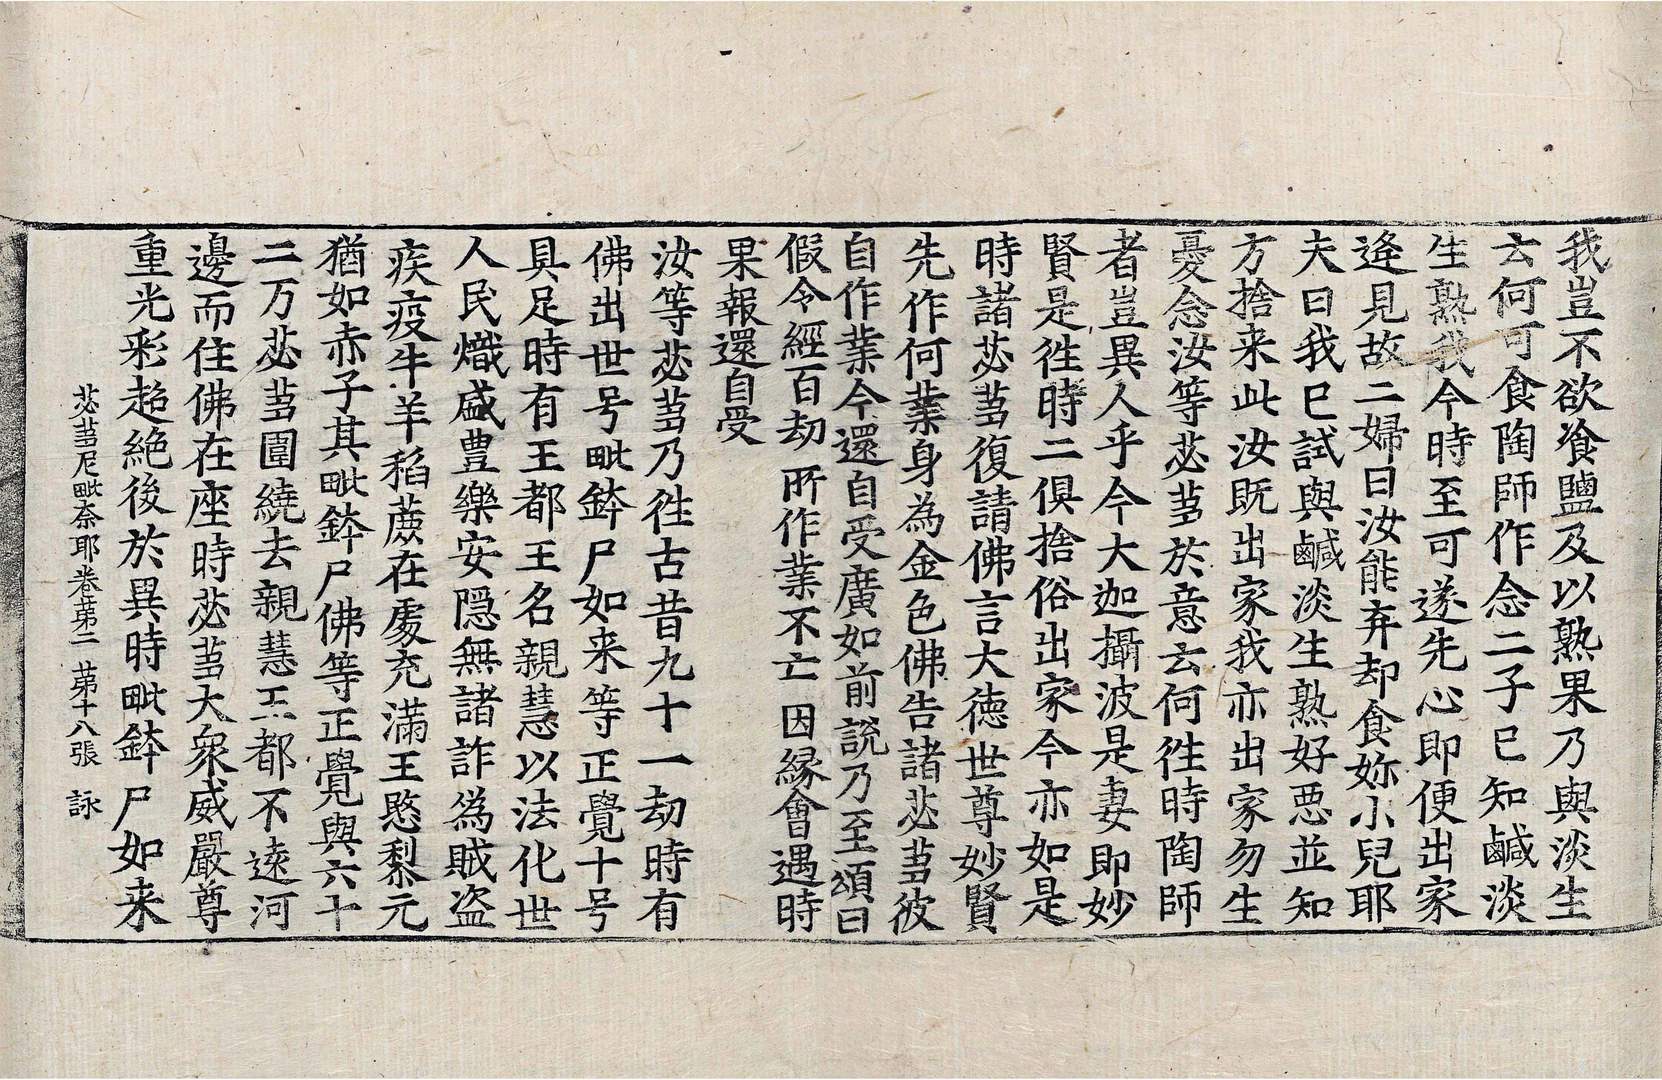 我豈不欲飡鹽及以熟果乃與淡生
去何可食陶師作念二子已知鹹淡
生熟我今時至可遂先心即便出家
逄見故二婦曰汝能弃却食妳小兒耶
夫曰我已試與鹹淡生熟好悪並知
方捨来此汝既出家我亦出家勿生
憂念汝等苾蒭於意云何徃時陶師
者豈異人乎今大迦攝波是妻即妙
賢是徃時二俱捨俗出家今亦如是
時諸苾蒭復請佛言大徳世尊妙賢
先作何業身為金色佛告諸苾蒭彼
自作業今還自受廣如前説乃至頌曰
假令經百劫 所作業不亡 因縁會遇時
果報還自受
汝等苾蒭乃徃古昔九十一劫時有
佛出世号毗鉢尸如来等正覺十号
具足時有王都王名親慧以法化世
人民熾盛豊樂安隠無諸詐偽賊盗
疾疫牛羊稻蔗在處充滿王愍黎元
猶如赤子其毗鉢尸佛等正覺與六十
二万苾蒭圍繞去親慧王都不逺河
邊而住佛在座時苾蒭大衆威嚴尊
重光彩超絶後於異時毗鉢尸如来
苾蒭尼毗奈耶卷第二 第十八張 詠